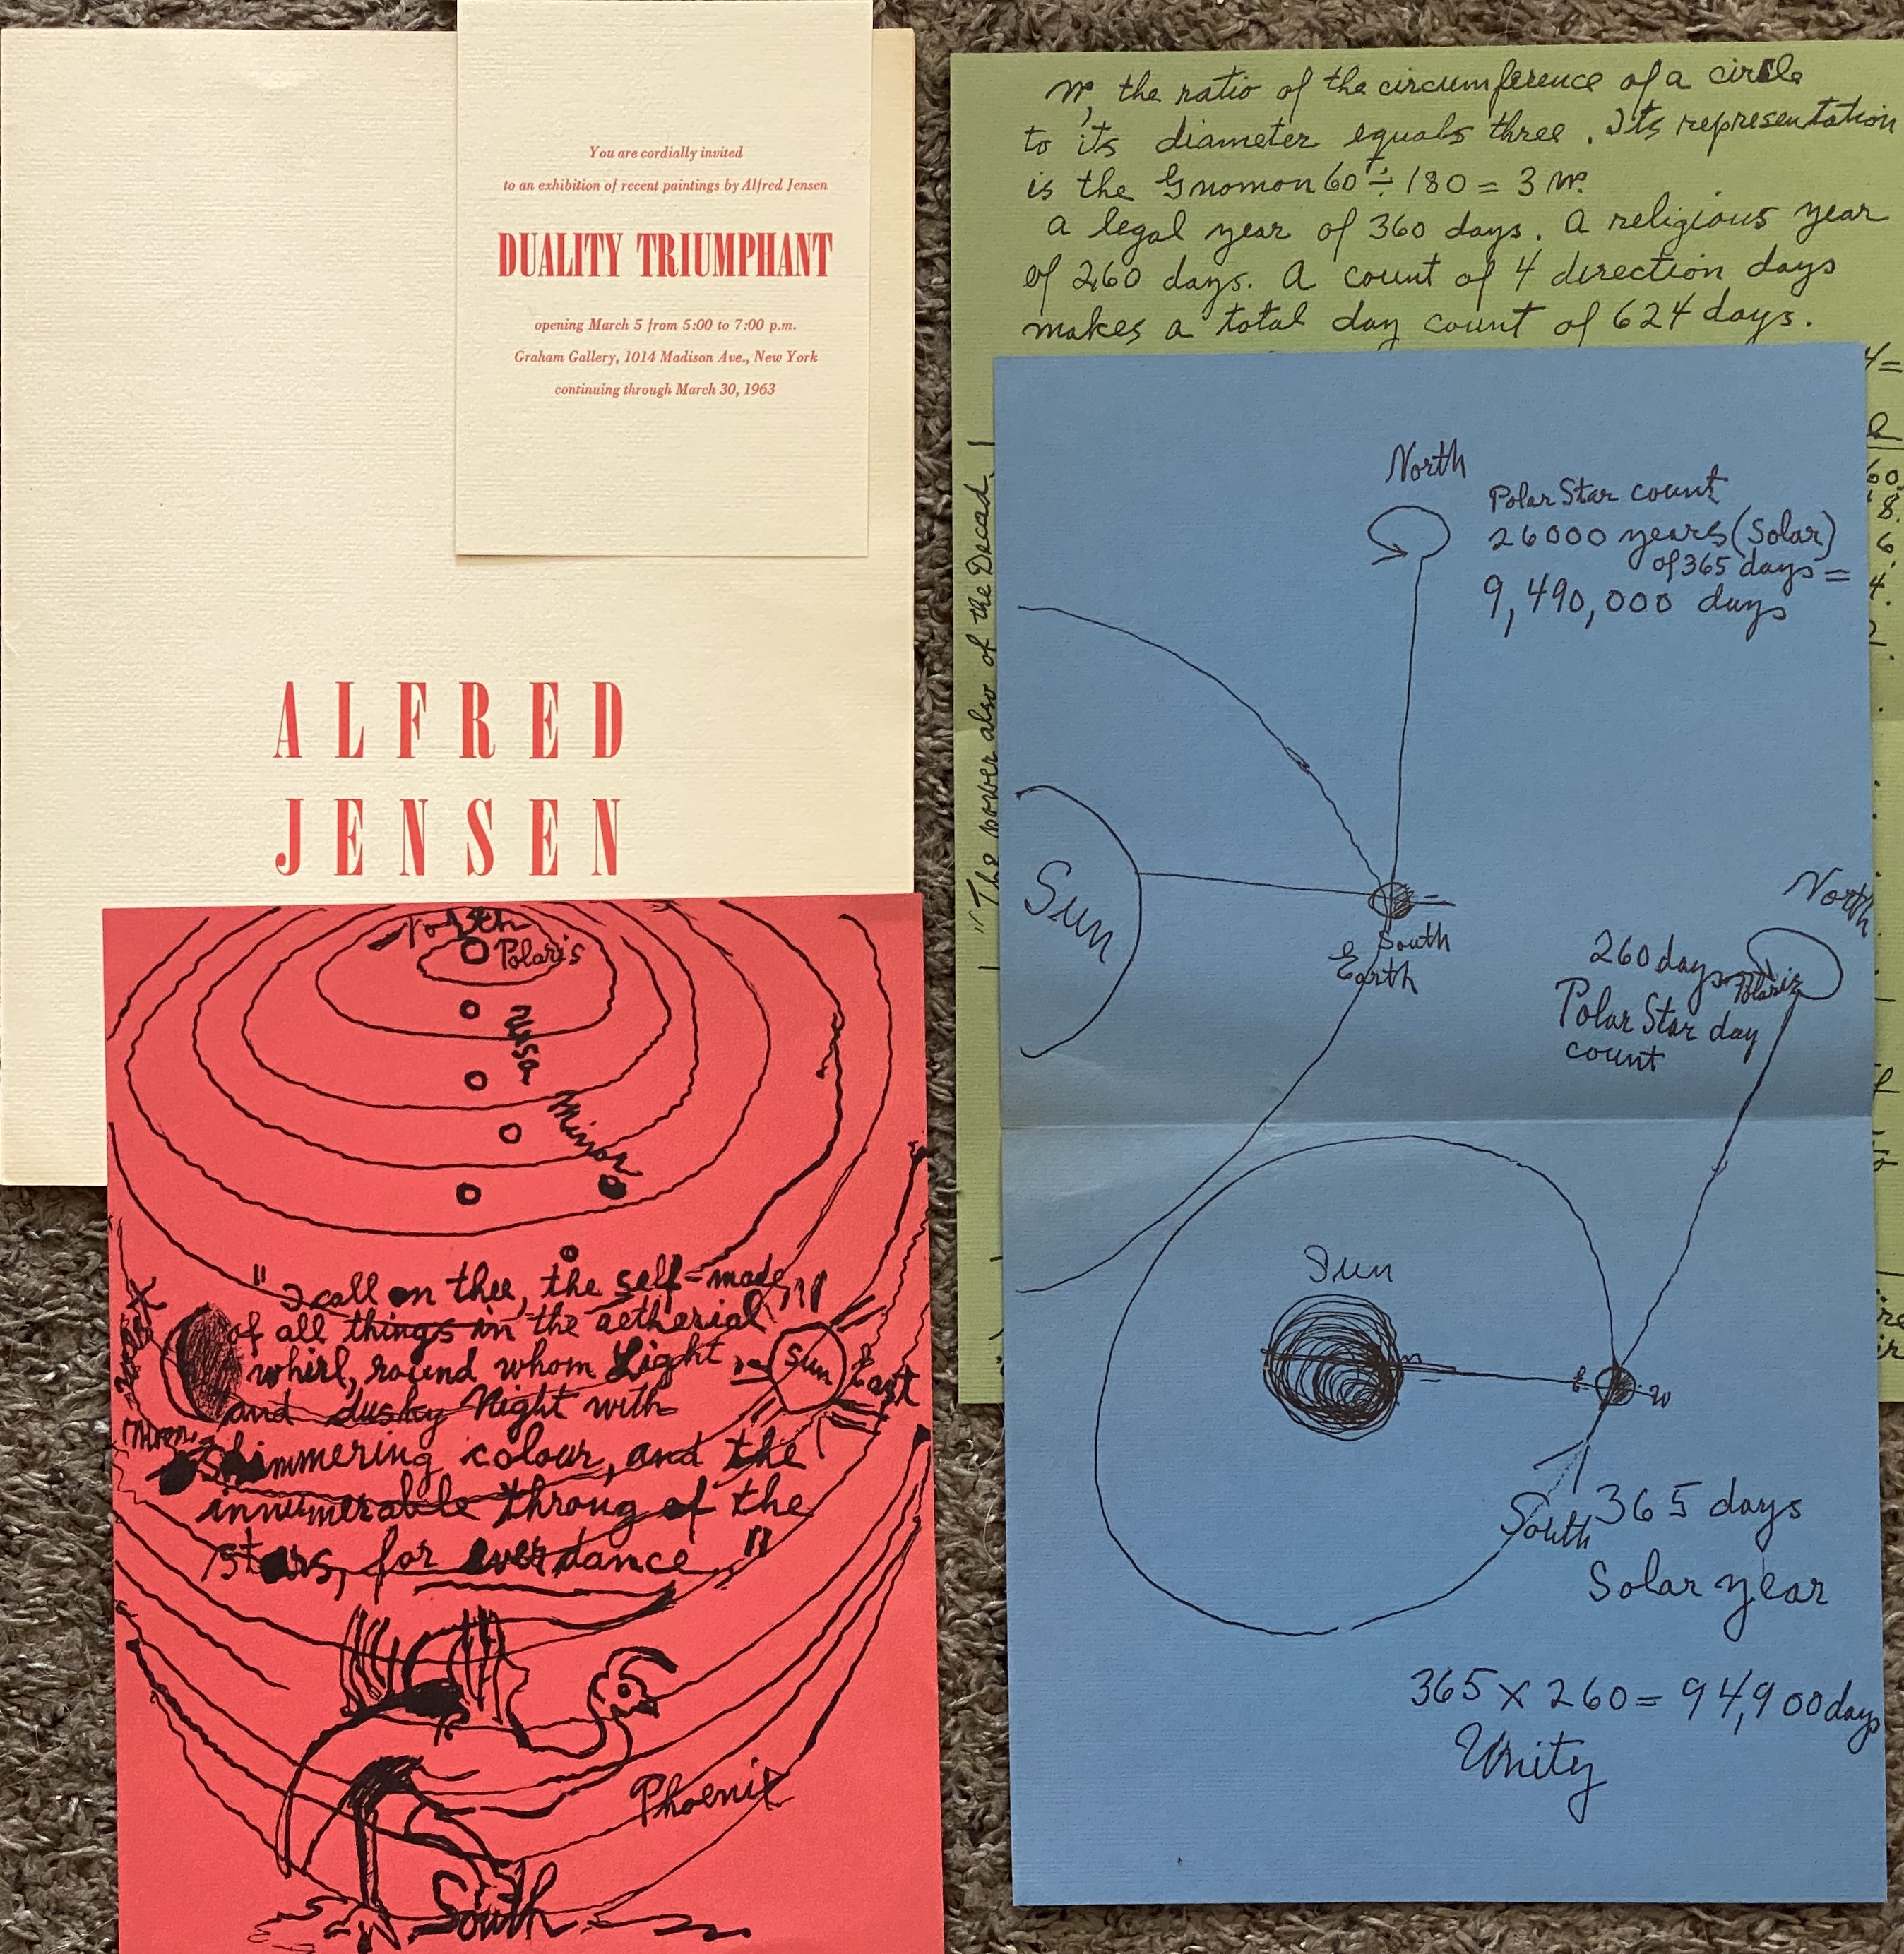 You are cordially invited
to an exhibition of recent paintings by Alfred Jensen
DUALITY TRIUMPHANT
opening March 5 from 5:00 to 7:00 p.m.
Graham Gallery, 1014 Madison Ave., New York
continuing through March 30, 1963
ALFRED
JENSEN
North
Polaris
Ursa
Minor
"I call on thee, the self-made
of all things in the aetherial
whirl, round whom Light
and dusky Night with
shimmering colour, and the
innumerable throng of the
stars, for ever dance"
West
Moon
Sun
East
Phoenix
South
the ratio of the circumference of a circle
to its diameter equals three. Its representation
is the Gnomon 60 ÷ 180 = 3
a legal year of 360 days. A religious year
of 260 days. A count of 4 direction days
makes a total day count of 624 days.
"The power also of the Decad.
North
Polar Star count
26000 years (Solar)
of 365 days =
9,490,000 days
Sun
South
Earth
North
260 days
Polaris
Polar Star day
count
Sun
E
W
South
365 days
Solar year
365 x 260 = 94,900 days
Unity